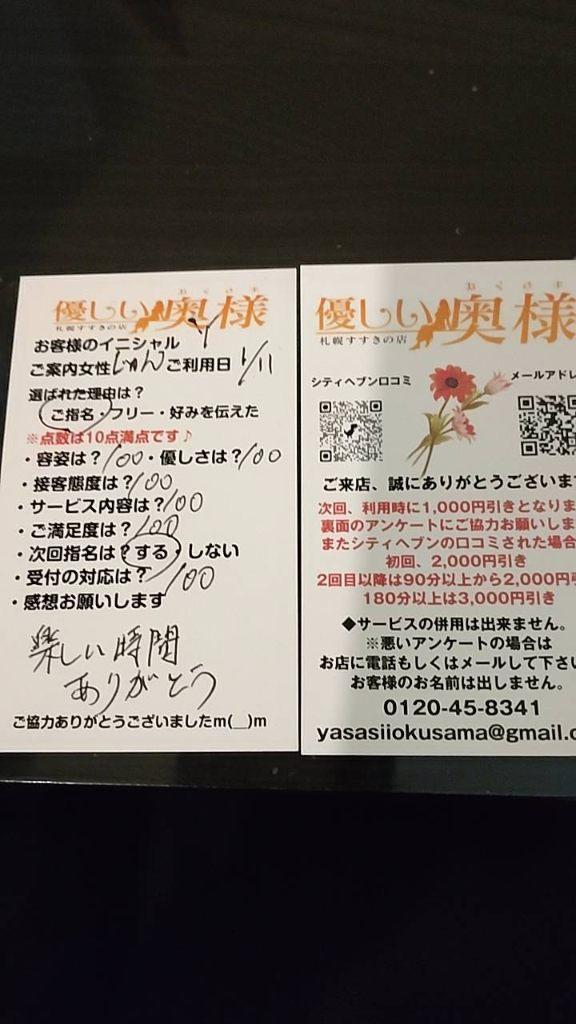 優しい奥様
札幌すすきの店
お客様のイニシャル Y
ご案内女性 じゅん ご利用日 1/11
選ばれた理由は?
ご指名・フリー・好みを伝えた
※点数は10点満点です♪
・容姿は? 100 ・優しさは? 100
・接客態度は? 100
・サービス内容は? 100
・ご満足度は? 100
・次回指名は?する・しない
・受付の対応は? 100
・感想お願いします
楽しい時間
ありがとう
ご協力ありがとうございましたm(__)m
おくさま
優しい奥様
札幌すすきの店
シティヘブン口コミ
メールアドレ
ご来店、誠にありがとうござい
次回、利用時に1,000円引きとなりま
裏面のアンケートにご協力お願いしま
またシティヘブンの口コミされた場合
初回、2,000円引き
2回目以降は90分以上から2,000円
180分以上は3,000円引き
◆サービスの併用は出来ません。
※悪いアンケートの場合は
お店に電話もしくはメールして下さ
お客様のお名前は出しません。
0120-45-8341
yasasiiokusama@gmail.c